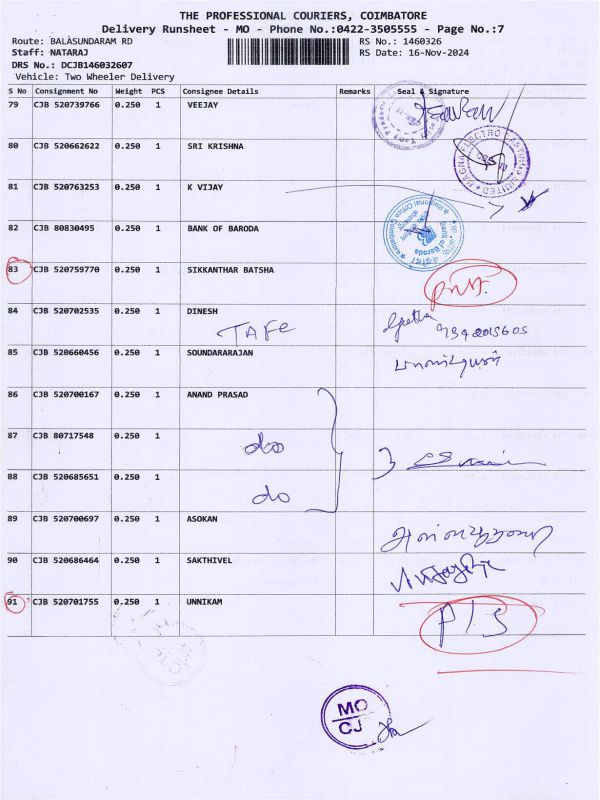 THE PROFESSIONAL COURIERS, COIMBATORE
Delivery Runsheet - MO - Phone No.:0422-3505555 - Page No.:7
Route: BALASUNDARAM RD RS No.: 1460326
Staff: NATARAJ RS Date: 16-Nov-2024
DRS No.: DCJB146032607
Vehicle: Two Wheeler Delivery
S No Consignment No Weight PCS Consignee Details Remarks Seal & Signature
79 CJB 520739766 0.250 1 VEEJAY
80 CJB 520662622 0.250 1 SRI KRISHNA
81 CJB 520763253 0.250 1 K VIJAY
82 CJB 80830495 0.250 1 BANK OF BARODA
83 CJB 520759770 0.250 1 SIKKANTHAR BATSHA
84 CJB 520702535 0.250 1 DINESH
TAFE
85 CJB 520660456 0.250 1 SOUNDARARAJAN
86 CJB 520700167 0.250 1 ANAND PRASAD
87 CJB 80717548 0.250 1 do
88 CJB 520685651 0.250 1 do
89 CJB 520700697 0.250 1 ASOKAN
90 CJB 520686464 0.250 1 SAKTHIVEL
91 CJB 520701755 0.250 1 UNNIKAM
P/S
MO
CJ